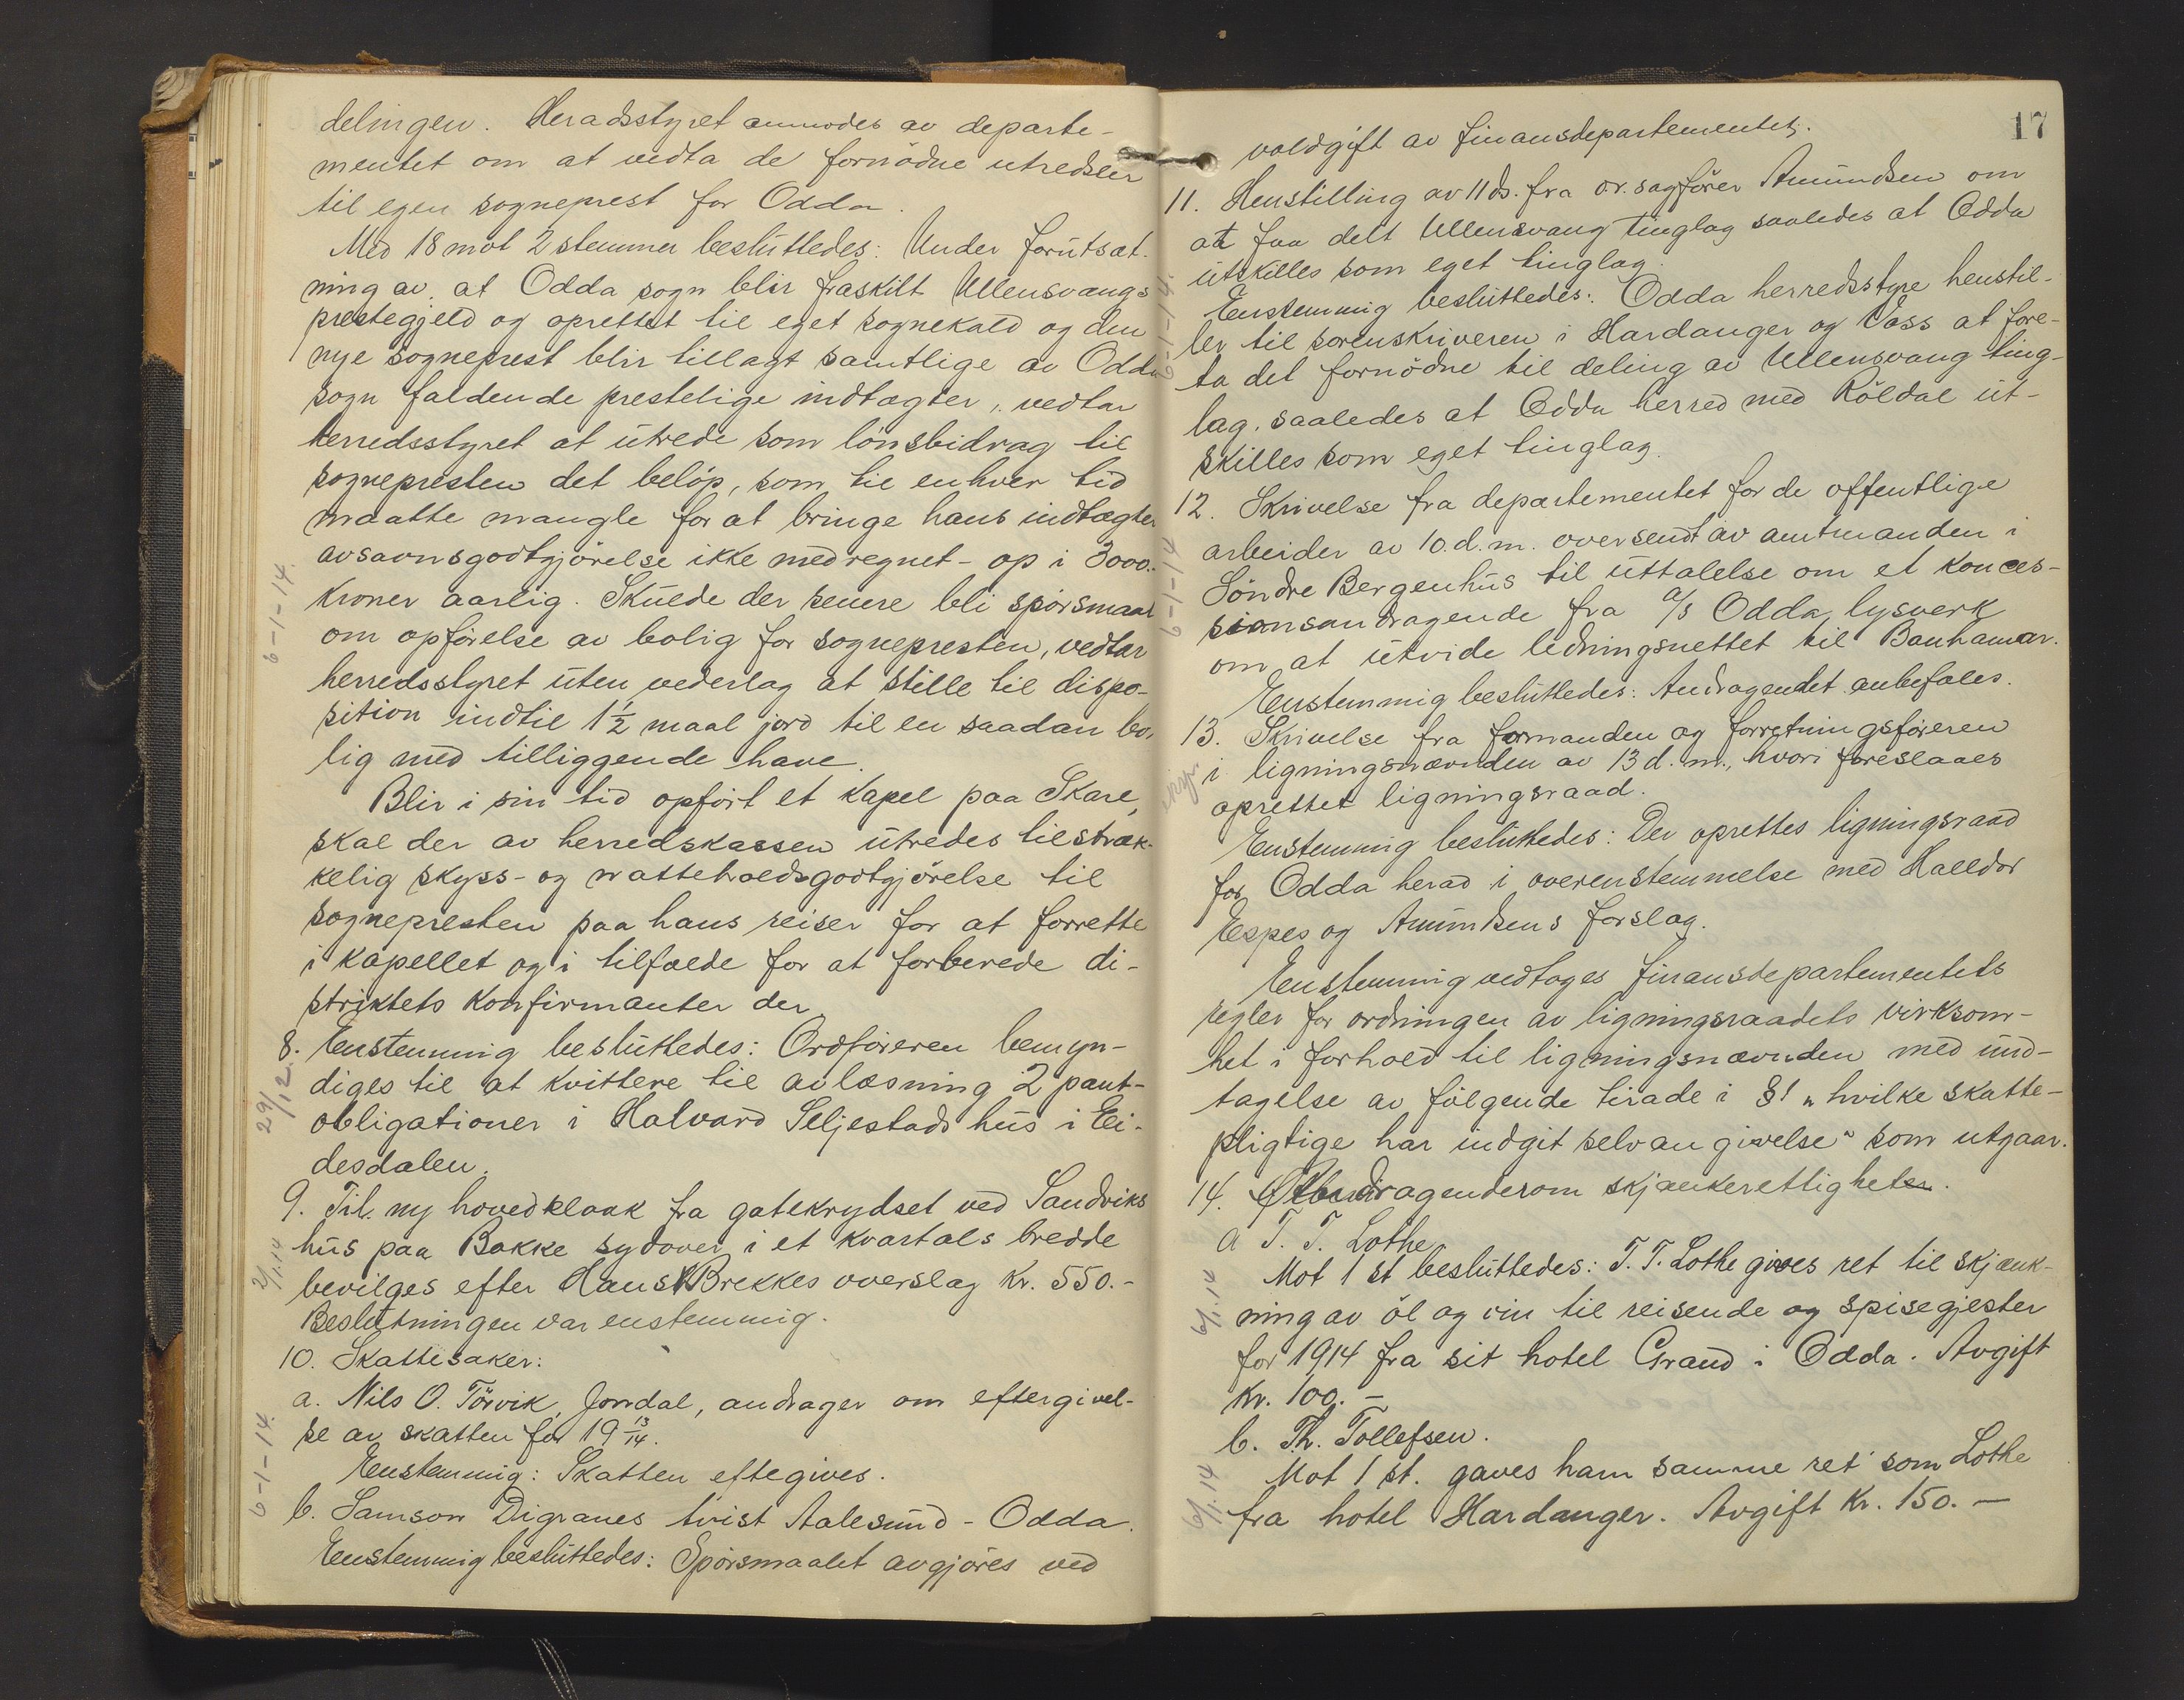 delingen. Heradsstyret anmodes av departe-
mentet om at vedta de fornödne utredsler
til egen sogneprest for Odda.
Med 18 mot 2 stemmer besluttedes: Under forutsæt-
ning av at Odda sogn blir fraskilt Ullensvangs
prestegjeld og oprettet til eget sognekald og den
nye sogneprest blir tillagt samtlige av Odda
sogn faldende prestelige indtægter, vedtar
herredsstyret at utrede som lönsbidrag til
sognepresten det belöp, som til enhver tid
maatte mangle for at bringe hans indtægter
avsavnsgodtgjörelse ikke medregnet - op i 3000.-
6-1-14.
kroner aarlig. Skulde der senere bli spörsmaal
om opförelse av bolig for sognepresten, vedtar
herredsstyret uten vederlag at stille til dispo-
sition indtil 1½ maal jord til en saadan bo-
lig med tilliggende have.
Blir i sin tid opfört et kapel paa Skare,
skal der av herredskassen utredes tilstræk-
kelig skyss- og natteholdsgodtgjörelse til
sognepresten paa hans reiser for at forrette
i kapellet og i tilfælde for at forberede di-
striktets konfirmanter der
8. Enstemmig besluttedes: Ordföreren bemyn-
29/12.
diges til at kvittere til avlæsning 2 pant-
obligationer i Halvard Seljestads hus i Ei-
desdalen.
9. Til ny hovedkloak fra gatekrydset ved Sandviks
2/1.14
hus paa Bakke sydover i et kvartals bredde
bevilges efter Hans Brekkes overslag kr. 550.-
Beslutningen var enstemmig.
10. Skattesaker:
a. Nils O. Törvik, Jondal, andrager om eftergivel-
se av skatten for 19 13/14.
6-1-14.
Enstemmig: Skatten eftegives.
b. Samson Digranes tvist Aalesund - Odda.
Enstemmig besluttedes: Spörsmaalet avgjöres ved
17
voldgift av finansdepartementet.
11. Henstilling av 11 ds. fra o.r. sagförer Amundsen om
at faa delt Ullensvang tinglag saaledes at Odda
utskilles som eget tinglag.
6-1-14.
Enstemmig besluttedes: Odda herredsstyre henstil-
ler til sorenskriveren i Hardanger og Voss at fore-
ta det fornödne til deling av Ullensvang ting-
lag, saaledes at Odda herred med Röldal ut-
skilles som eget tinglag.
12. Skrivelse fra departementet for de offentlige
arbeider av 10.d.m. oversendt av amtmanden i
6-1-14
Söndre Bergenhus til uttalelse om et konces-
sionsandragende fra a/s Odda lysverk
om at utvide ledningsnettet til Banhamar.
Enstemmig besluttedes: Andragendet anbefales.
13. Skrivelse fra formanden og forretningsföreren
i ligningsnævnden av 13 d.m., hvori foreslaaes
oprettet ligningsraad.
Enstemmig besluttedes: Der oprettes ligningsraad
for Odda herad i overenstemmelse med Halldor
Espes og Amundsens forslag.
Enstemmig vedtoges finansdepartementets
regler for ordningen av ligningsraadets virksom-
het i forhold til ligningsnævnden med und-
tagelse av fölgende tirade i §1 „hvilke skatte-
pligtige har indgit selvangivelse" som utgaar.
14. Andragende om skjænkerettigheter.
a T. T. Lothe
Mot 1 st besluttedes: T. T. Lothe gives ret til skjænk-
6/1.14
ning av öl og vin til reisende og spisegjester
for 1914 fra sit hotel Grand i Odda. Avgift
kr. 100.-
b. Th. Tollefsen.
Mot 1 st. gaves ham samme ret som Lothe
6/1.14
fra hotel Hardanger. Avgift kr. 150.-